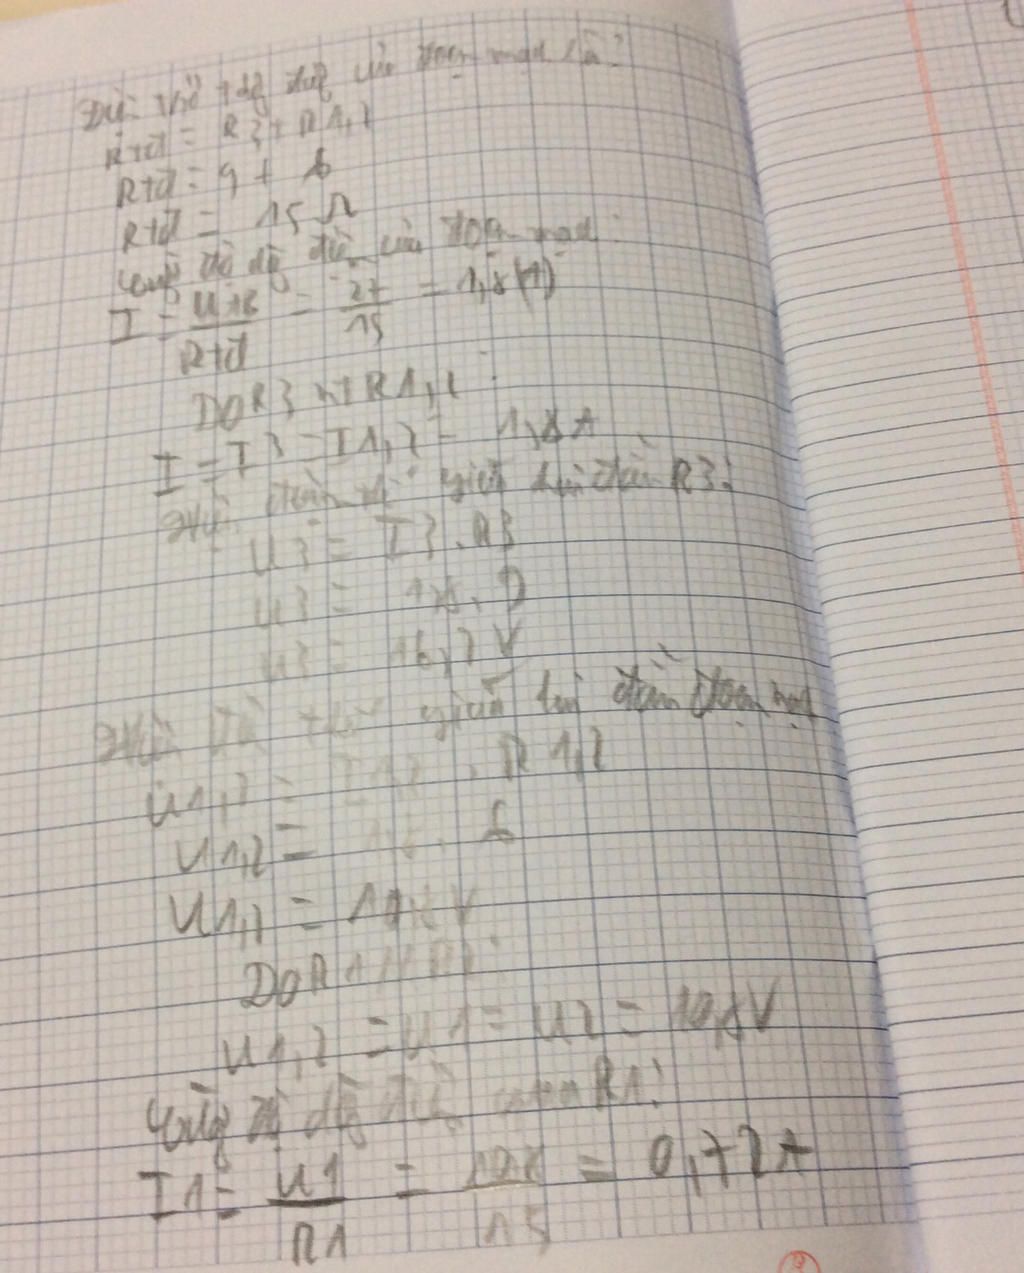 Điện trở tđg đg của đoạn mạch là:
Rtđ = R3 + R1,2
Rtđ = 9 + 6
Rtđ = 15 Ω
Cường độ dg điện của đoạn mạch:
I = UAB / Rtđ = 27 / 15 = 1,8 (A)
DO R3 nt R1,2:
I = I3 = I1,2 = 1,8 A
Hiệu điện thế giữa hai đầu R3:
U3 = I3 . R3
U3 = 1,8 . 9
U3 = 16,2 V
Hiệu điện thế giữa hai đầu đoạn mạch
U1,2 = I1,2 . R1,2
U1,2 = 1,8 . 6
U1,2 = 10,8 V
DO R1 // R2:
U1,2 = U1 = U2 = 10,8V
Cường độ dg điện qua R1:
I1 = U1 / R1 = 10,8 / 15 = 0,72A